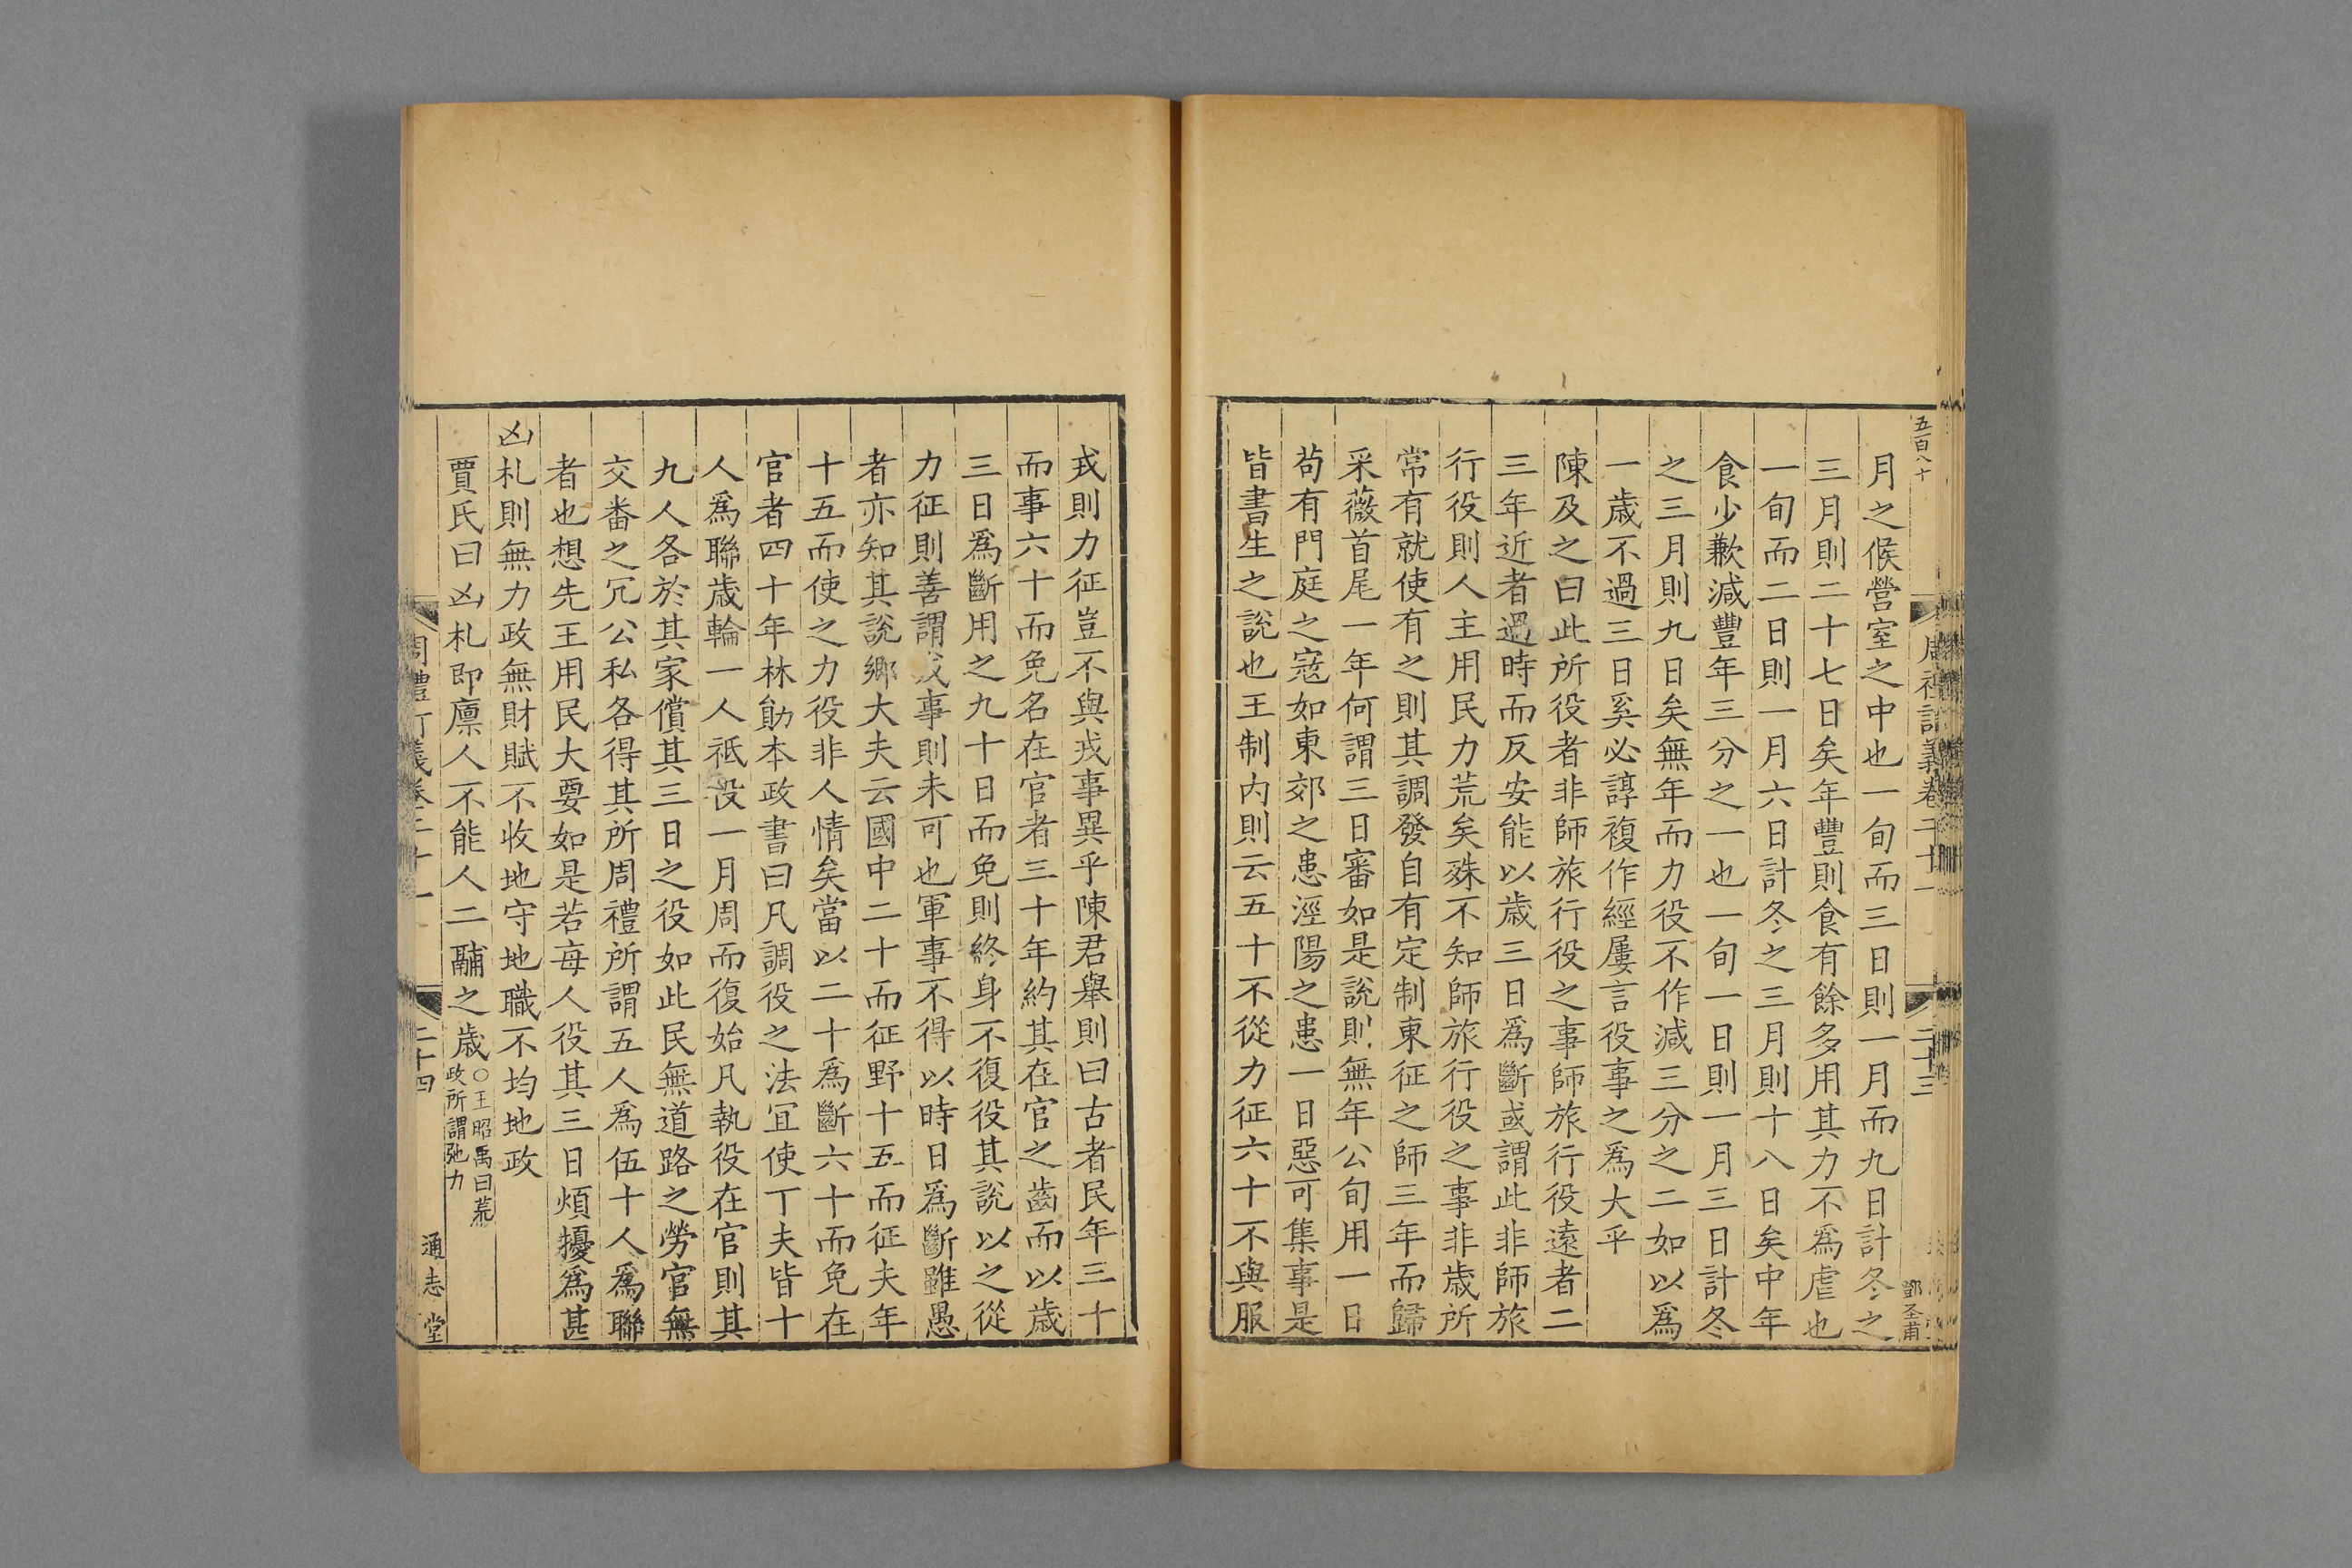 五百八十
周禮訂義卷二十一
二十三
鄧圣甫
月之候營室之中也一旬而三日則一月而九日計冬之
三月則二十七日矣年豐則食有餘多用其力不爲虐也
一旬而二日則一月六日計冬之三月則十八日矣中年
食少歉減豐年三分之一也一旬一日則一月三日計冬
之三月則九日矣無年而力役不作減三分之二如以爲
一歲不過三日奚必諄複作經屢言役事之爲大乎
陳及之曰此所役者非師旅行役之事師旅行役遠者二
三年近者過時而反安能以歲三日爲斷或謂此非師旅
行役則人主用民力荒矣殊不知師旅行役之事非歲所
常有就使有之則其調發自有定制東征之師三年而歸
采薇首尾一年何謂三日審如是說則無年公旬用一日
苟有門庭之寇如東郊之患涇陽之患一日惡可集事是
皆書生之說也王制內則云五十不從力征六十不與服
戎則力征豈不與戎事異乎陳君舉則曰古者民年三十
而事六十而免名在官者三十年約其在官之齒而以歲
三日爲斷用之九十日而免則終身不復役其說以之從
力征則善謂戎事則未可也軍事不得以時日爲斷雖愚
者亦知其說鄉大夫云國中二十而征野十五而征夫年
十五而使之力役非人情矣當以二十爲斷六十而免在
官者四十年林勛本政書曰凡調役之法宜使丁夫皆十
人爲聯歲輪一人祗役一月周而復始凡執役在官則其
九人各於其家償其三日之役如此民無道路之勞官無
交番之冗公私各得其所周禮所謂五人爲伍十人爲聯
者也想先王用民大要如是若每人役其三日煩擾爲甚
凶札則無力政無財賦不收地守地職不均地政
賈氏曰凶札即廩人不能人二鬴之歲
○王昭禹曰荒
政所謂弛力
周禮訂義卷二十一
二十四
通志堂